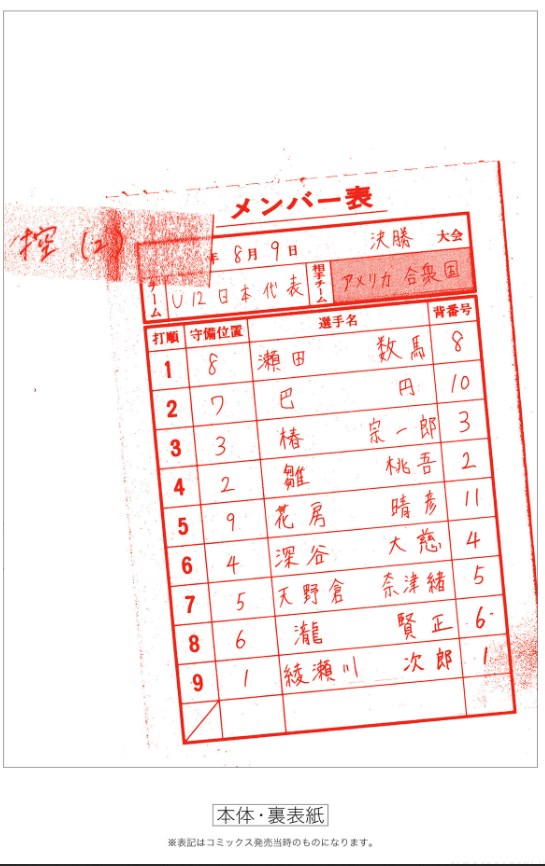 メンバー表
控(2)
年 8月 9日 決勝 大会
チーム U12日本代表 相手チーム アメリカ合衆国
打順 守備位置 選手名 背番号
1 8 瀬田 数馬 8
2 7 巴 円 10
3 3 椿 宗一郎 3
4 2 雛 桃吾 2
5 9 花房 晴彦 11
6 4 深谷 大慈 4
7 5 天野倉 奈津緒 5
8 6 瀧 賢正 6
9 1 綾瀬川 次郎 1
本体・裏表紙
※表記はコミックス発売当時のものになります。